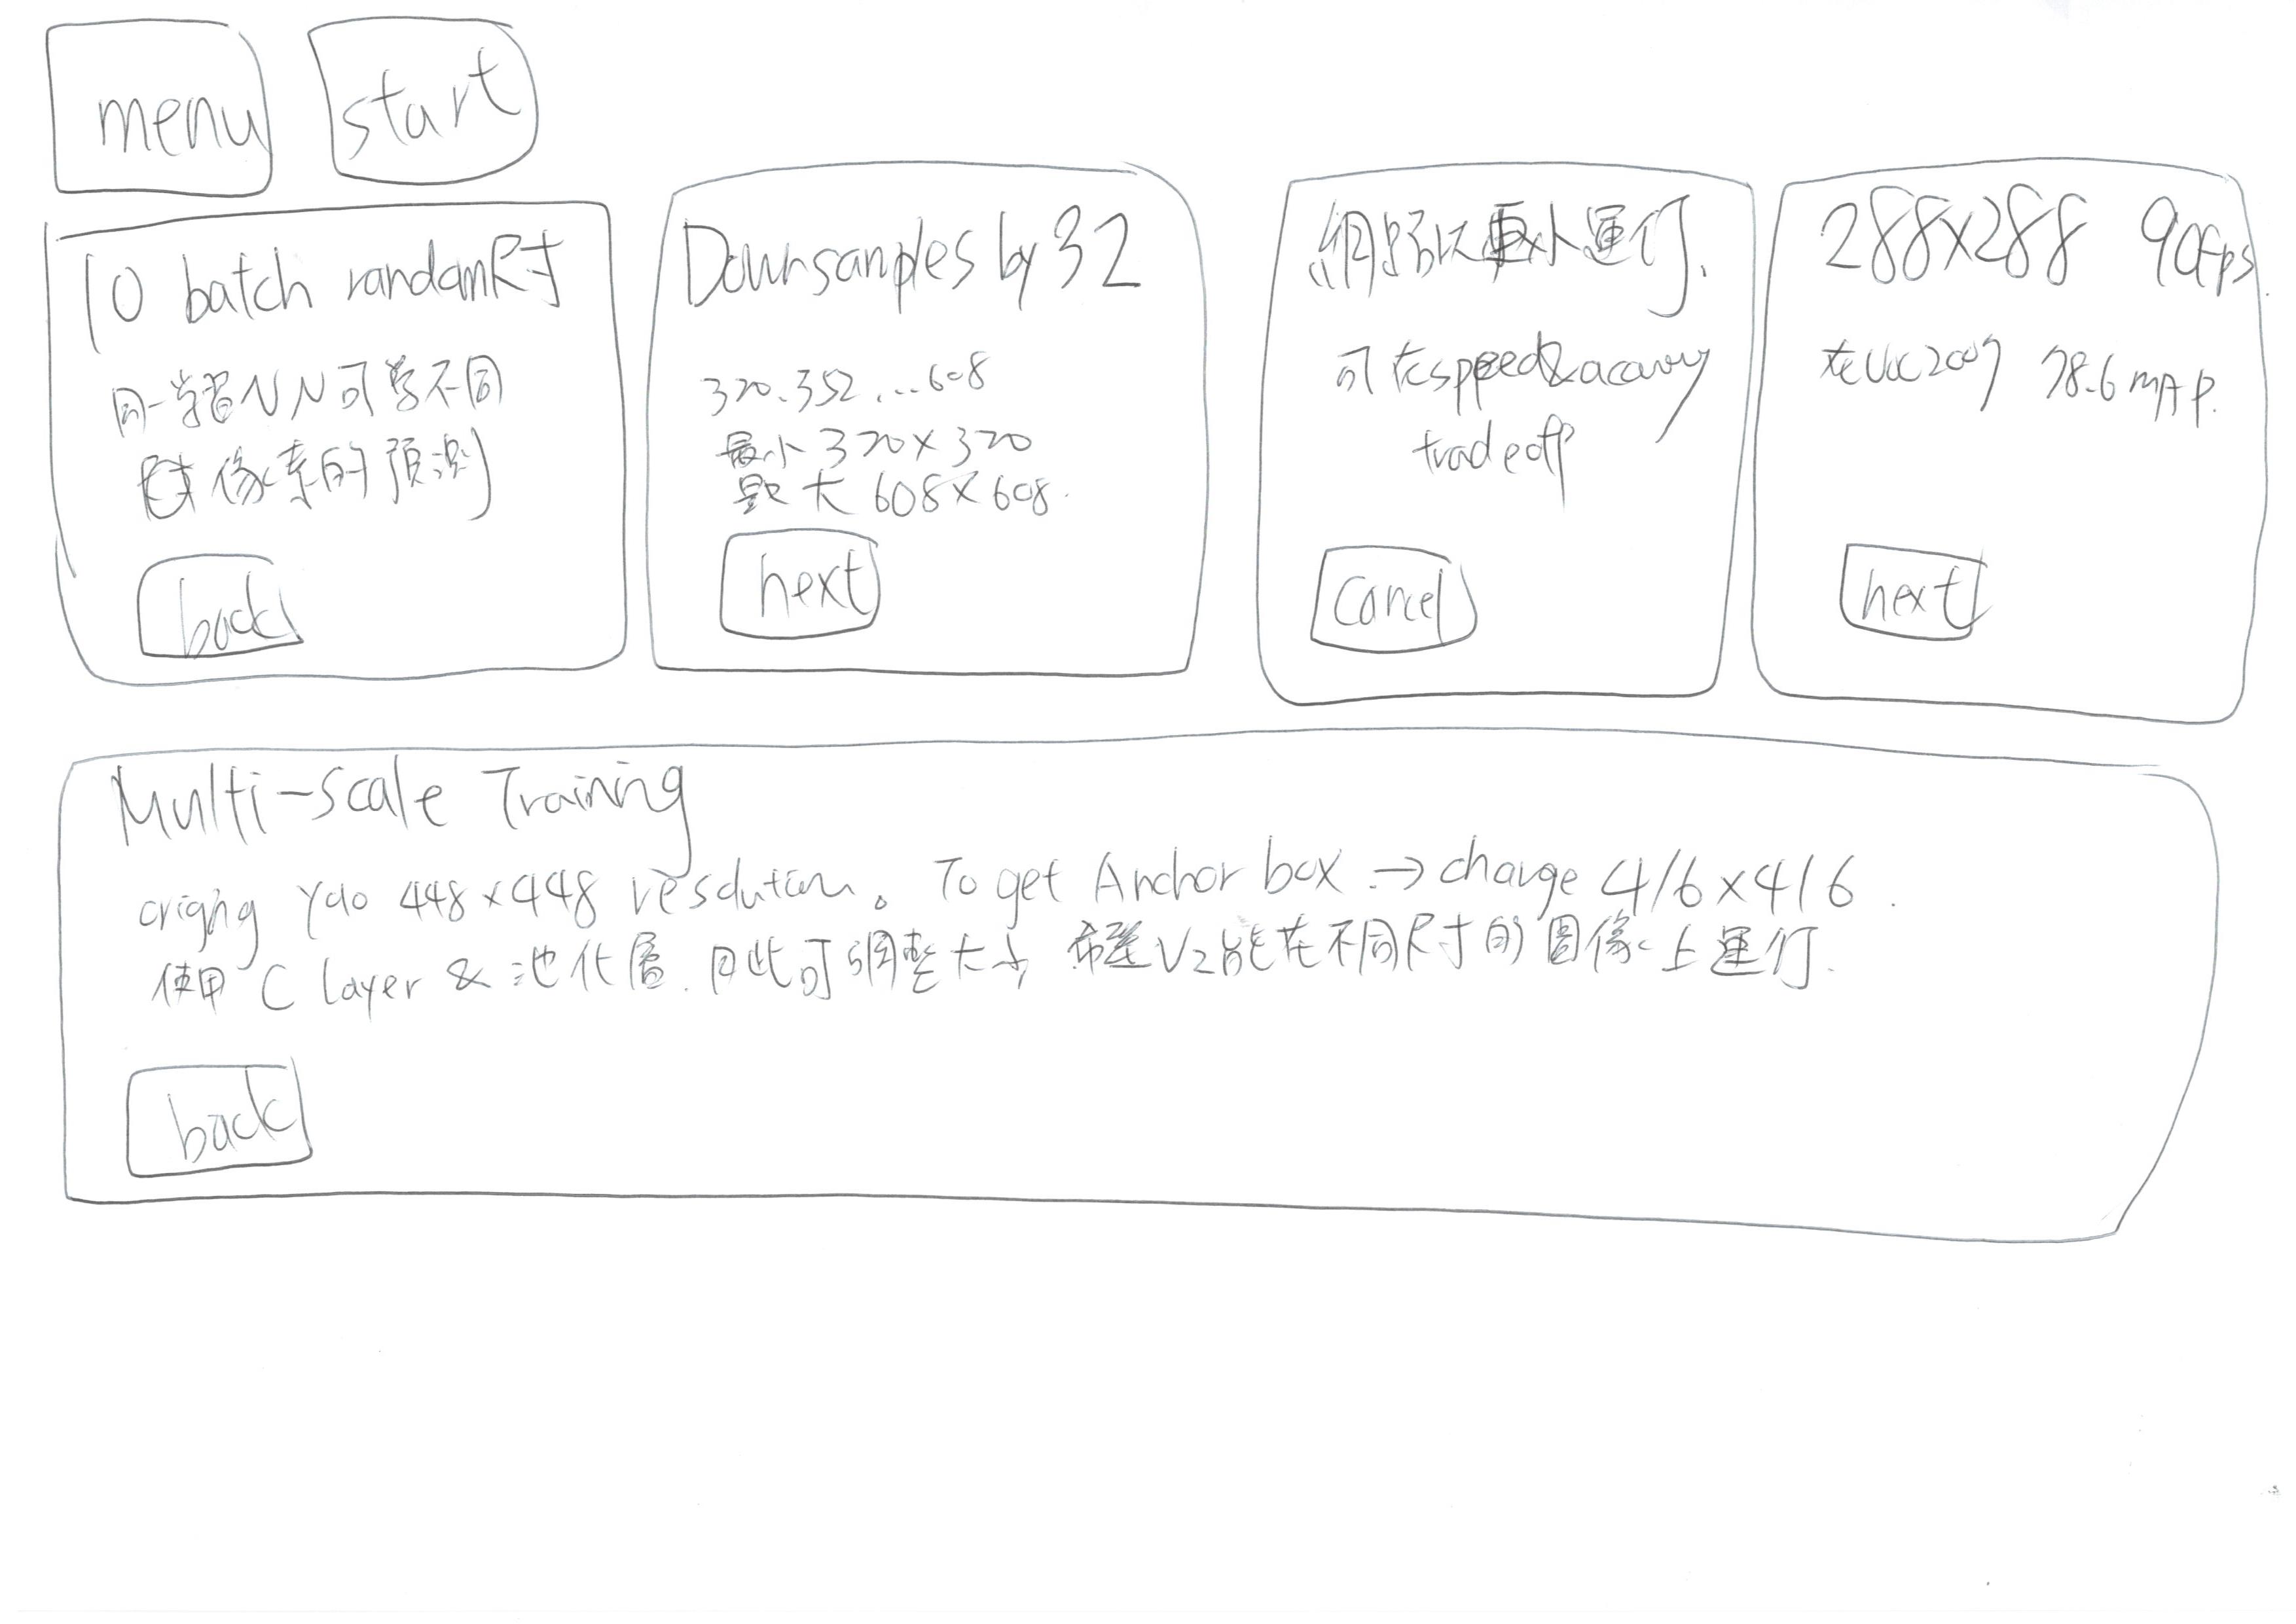 menu
start
10 batch random尺寸
同一NN可學不同
像素的預測
back
Downsamples by 32
320.352...608
最小320×320
最大608×608.
next
網路以更小運行.
可在speed&accuracy
tradeoff
cancel
288×288 90fps
在Voc2007 78.6mAP.
next
Multi-scale Training
Yolo 448×448 resolution。To get Anchor box → change 416×416.
使用C layer & 池化層.因此可調整大小 希望V2能在不同尺寸的圖像上運行.
back